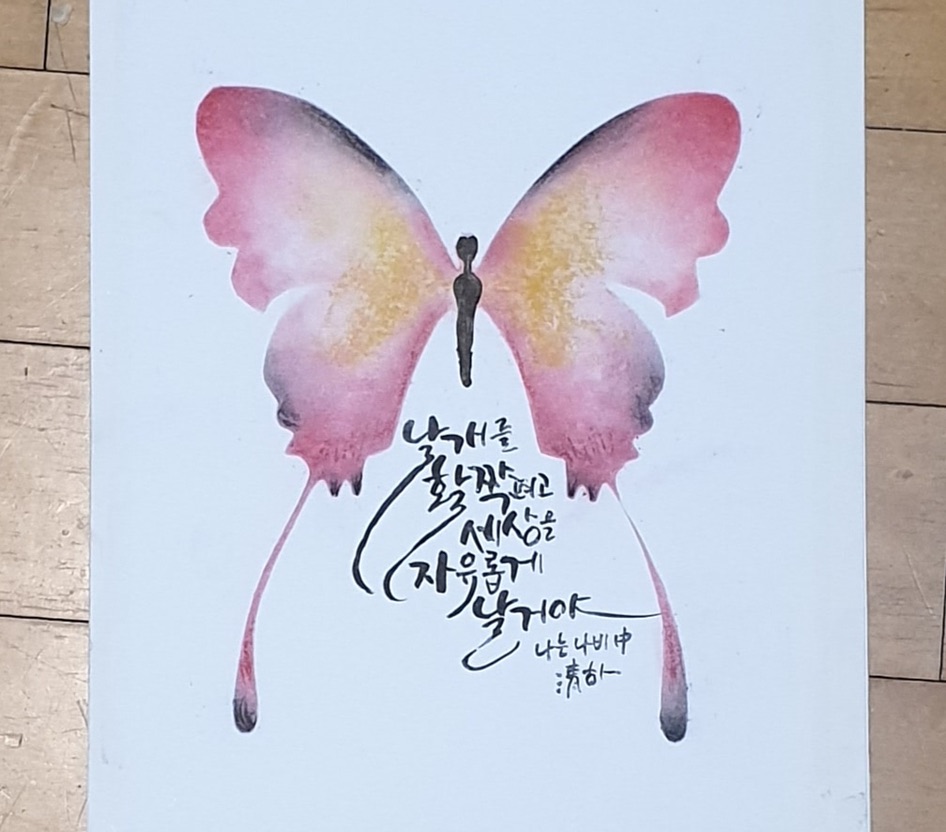 날개를
활짝 펴고
세상을
자유롭게
날거야
나는 나비 中
淸하